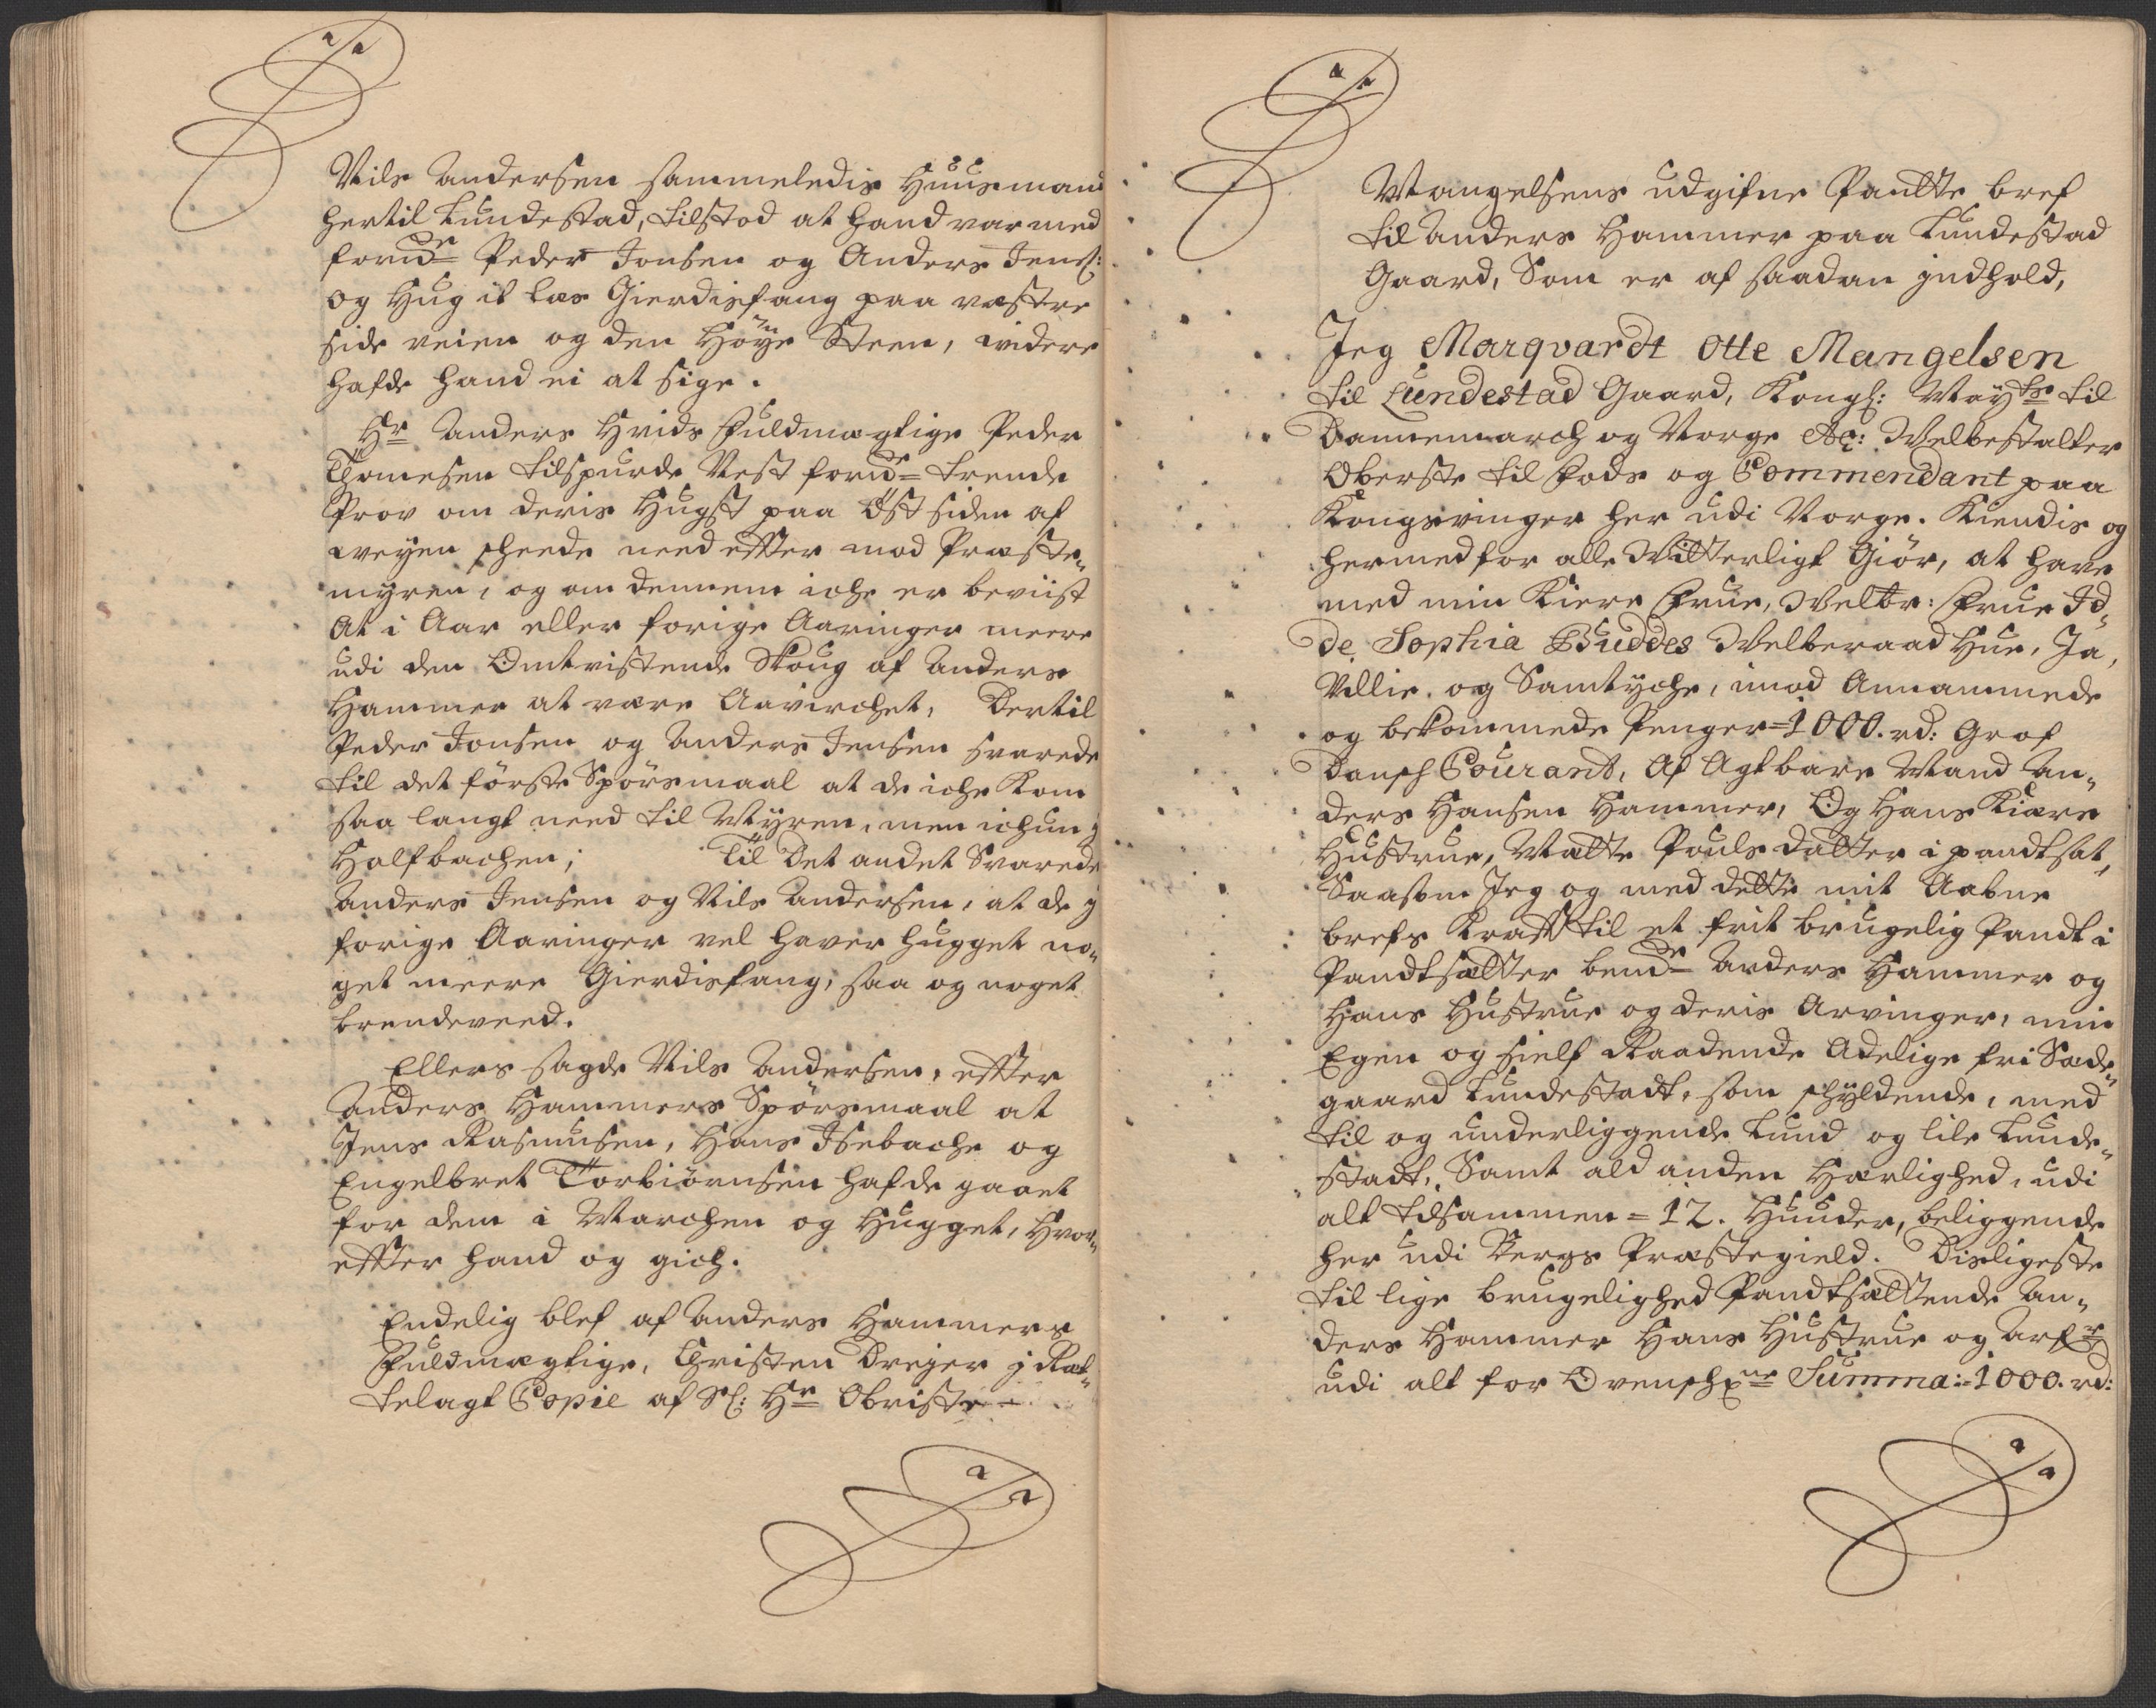 Nils Andersen sammeledis Huusmand
hertil Lundestad, tilstod at hand var med
forn.de Peder Jonsen og Anders Jens:
og Hug it las Gierdisfang paa vestre
side veien og den Höye Steen, widere
hafde hand ei at sige.
Hr Anders Hvids Fuldmægtige Peder
Thomesen tilspurde Nest forn.de trende
Prov om deris Hugst paa Öst siden af
weyen skeede need effter mod Præste„
myren, og om dennem iche er beviist
At i Aar eller forige Aaringer meere
udi den Omtvistende Skoug af Anders
Hammer at være Aavirchet, Dertil
Peder Jonsen og Anders Jensen svarede
til det förste Spörsmaal at de iche kom
saa langt need til Myren, men ichun j
Halfbachen; Til Det andet Svarede
Anders Jensen og Nils Andersen, at de j
forige Aaringer vel haver hugget no„
get meere Gierdisfang, saa og noget
brendeveed.
Ellers sagde Nils Andersen, effter
Anders Hammers Spörsmaal at
Jens Rasmusen, Hans Isebache og
Engelbret Torbiörnsen hafde gaaet
for dem i Marchen og Hugget, Hvor„
effter hand og gich.
Endelig blef af Anders Hammers
Fuldmægtige, Christen Dreyer j Ret„
telagt Copie af Sl: Hr Obriste
Mangelsens udgifne Pantte bref
til Anders Hammer paa Lundestad
Gaard, Som er af saadan jndhold,
Jeg Marqvardt Otte Mangelsen
til Lundestad Gaard, Kongl: May.ts til
Dannemarch og Norge &c: Welbestalter
Oberste til Fods og Commendant paa
Kongsvinger her udi Norge. Kiendis og
hermed for alle Witterligt Giör, at have
med min Kiere Frue, Welbr: Frue Id„
de Sophia Buddes Welberaad Hue, Ja,
Villie, og Samtyche, imod Annammede
og bekommede Penger=1000. rd: Grof
Dansch Courant, Af Agtbare Mand An„
ders Hansen Hammer, Og Hans Kiære
Hustrue, Mætte Pouls datter i pandtsat,
Saasom Jeg og med dette mit Aabne
brefs Krafft til et frit brugelig Pandt i
Pandtsætter bem.de Anders Hammer og
Hans Hustrue og deris Arvinger, min
Egen og sielf Raadende Adelige fri Sæde„
gaard Lundestadt, som schyldende, med
til og underliggende Lund og lile Lunde„
stadt, Samt ald anden Herlighed, udi
alt tilsammen = 12. Huuder, beliggende
her udi Bergs Præstegield. Disligeste
til lige brugelighed Pandtsættende An„
ders Hammer Hans Hustrue og Arf.r
udi alt for Ovensch.ne Summa:=1000. rd: